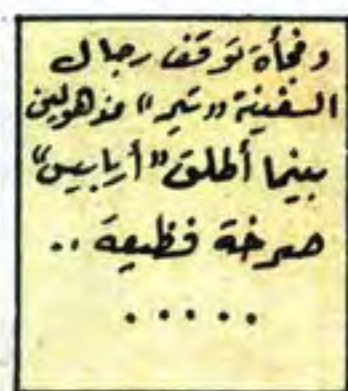 وفجأة توقف رجال
السفينة «تير» مذهولين
بينما أطلق «أريابيس»
صرخة فظيعة ..
.....